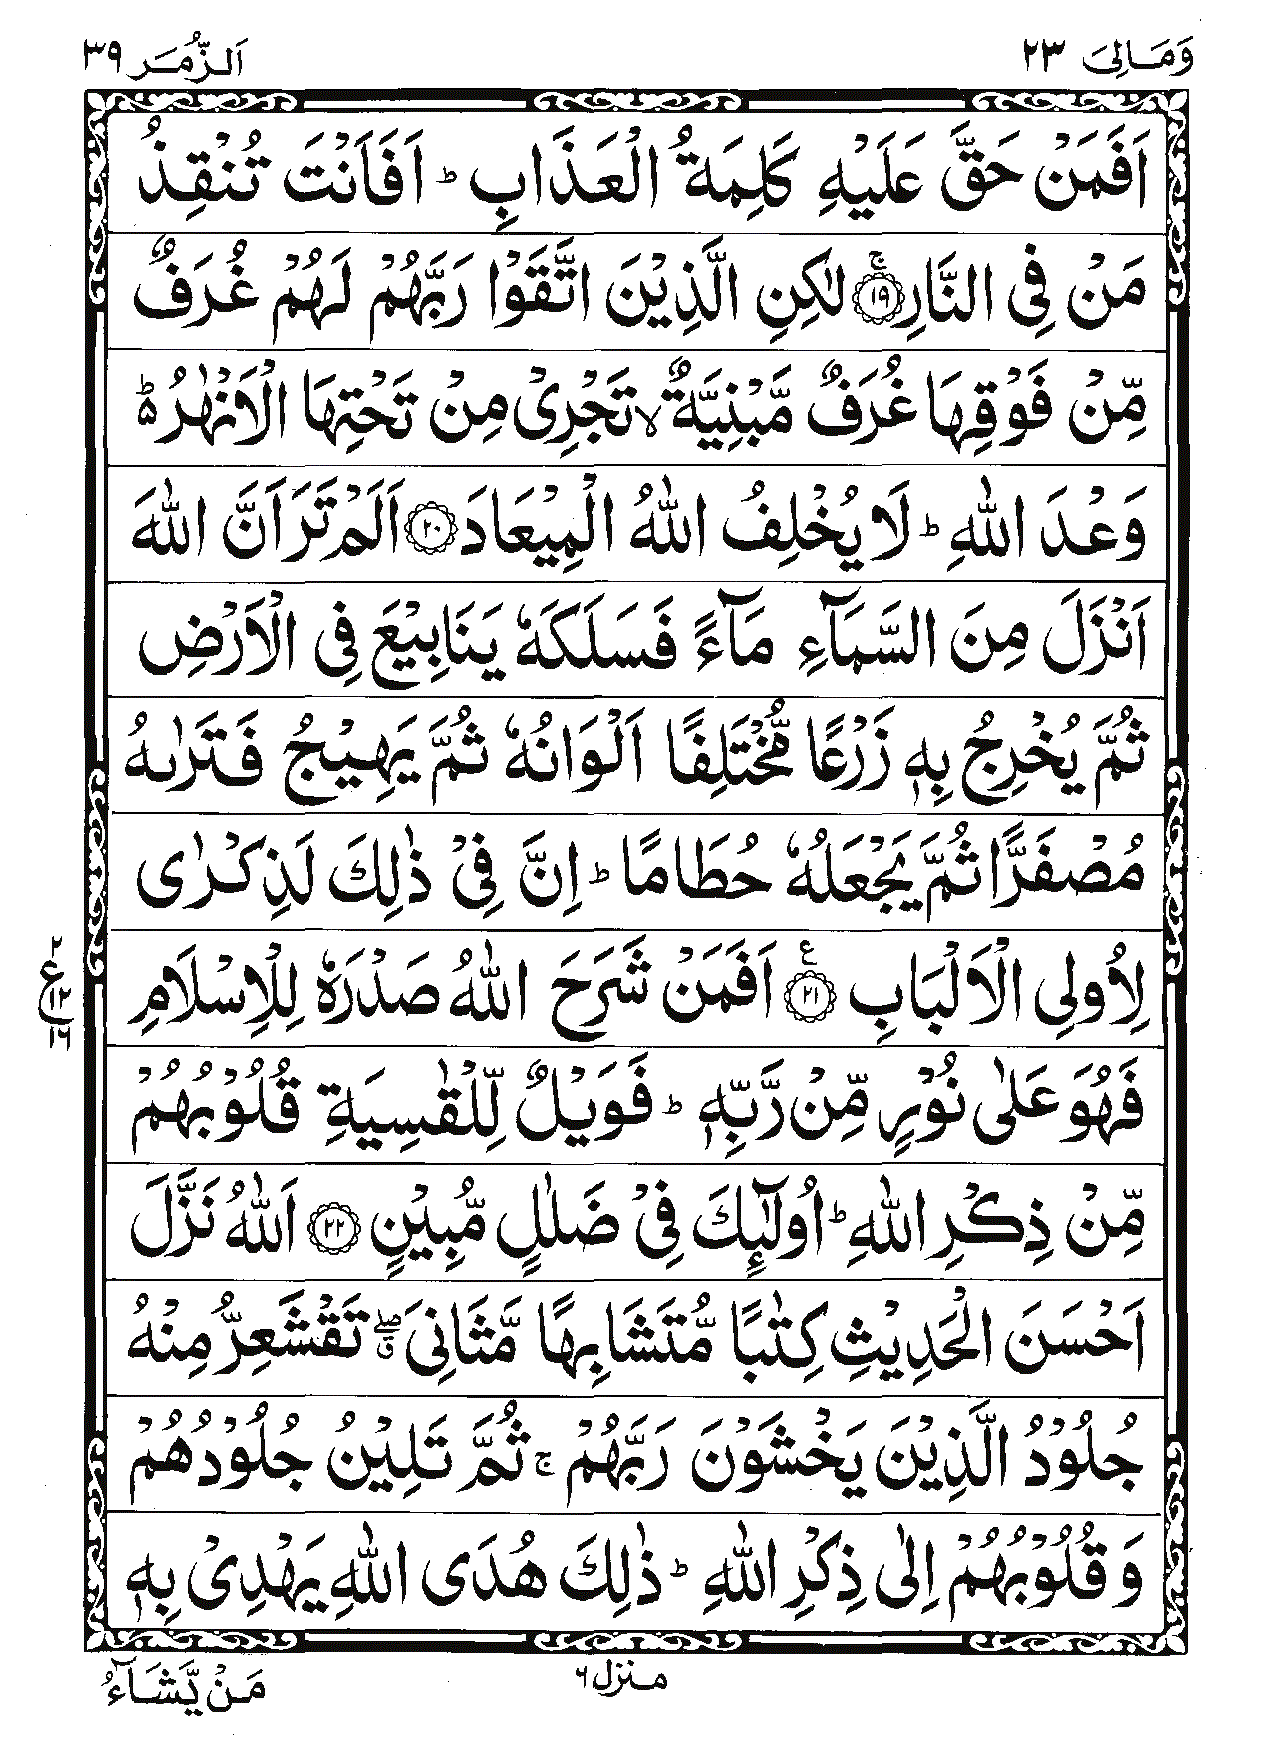 وَمَالِیَ ٢٣ اَلزُّمَر ٣٩
اَفَمَنْ حَقَّ عَلَيْهِ كَلِمَةُ الْعَذَابِ ؕ اَفَاَنْتَ تُنْقِذُ
مَنْ فِی النَّارِ ۚ ﴿١٩﴾ لٰكِنِ الَّذِيْنَ اتَّقَوْا رَبَّهُمْ لَهُمْ غُرَفٌ
مِّنْ فَوْقِهَا غُرَفٌ مَّبْنِيَّةٌ ۙ تَجْرِیْ مِنْ تَحْتِهَا الْاَنْهٰرُ ؕ۬
وَعْدَ اللّٰهِ ؕ لَا يُخْلِفُ اللّٰهُ الْمِيْعَادَ ﴿٢٠﴾ اَلَمْ تَرَ اَنَّ اللّٰهَ
اَنْزَلَ مِنَ السَّمَآءِ مَآءً فَسَلَكَهٗ يَنَابِيْعَ فِی الْاَرْضِ
ثُمَّ يُخْرِجُ بِهٖ زَرْعًا مُّخْتَلِفًا اَلْوَانُهٗ ثُمَّ يَهِيْجُ فَتَرٰىهُ
مُصْفَرًّا ثُمَّ يَجْعَلُهٗ حُطَامًا ؕ اِنَّ فِیْ ذٰلِكَ لَذِكْرٰی
لِاُولِی الْاَلْبَابِ ﴿٢١﴾ ع اَفَمَنْ شَرَحَ اللّٰهُ صَدْرَهٗ لِلْاِسْلَامِ
٢ ع ١٢ ١٦
فَهُوَ عَلٰی نُوْرٍ مِّنْ رَّبِّهٖ ؕ فَوَيْلٌ لِّلْقٰسِيَةِ قُلُوْبُهُمْ
مِّنْ ذِكْرِ اللّٰهِ ؕ اُولٰٓئِكَ فِیْ ضَلٰلٍ مُّبِيْنٍ ﴿٢٢﴾ اَللّٰهُ نَزَّلَ
اَحْسَنَ الْحَدِيْثِ كِتٰبًا مُّتَشَابِهًا مَّثَانِیَ ۖۗ تَقْشَعِرُّ مِنْهُ
جُلُوْدُ الَّذِيْنَ يَخْشَوْنَ رَبَّهُمْ ۚ ثُمَّ تَلِيْنُ جُلُوْدُهُمْ
وَ قُلُوْبُهُمْ اِلٰی ذِكْرِ اللّٰهِ ؕ ذٰلِكَ هُدَی اللّٰهِ يَهْدِیْ بِهٖ
منزل ٦
مَنْ يَّشَآءُ